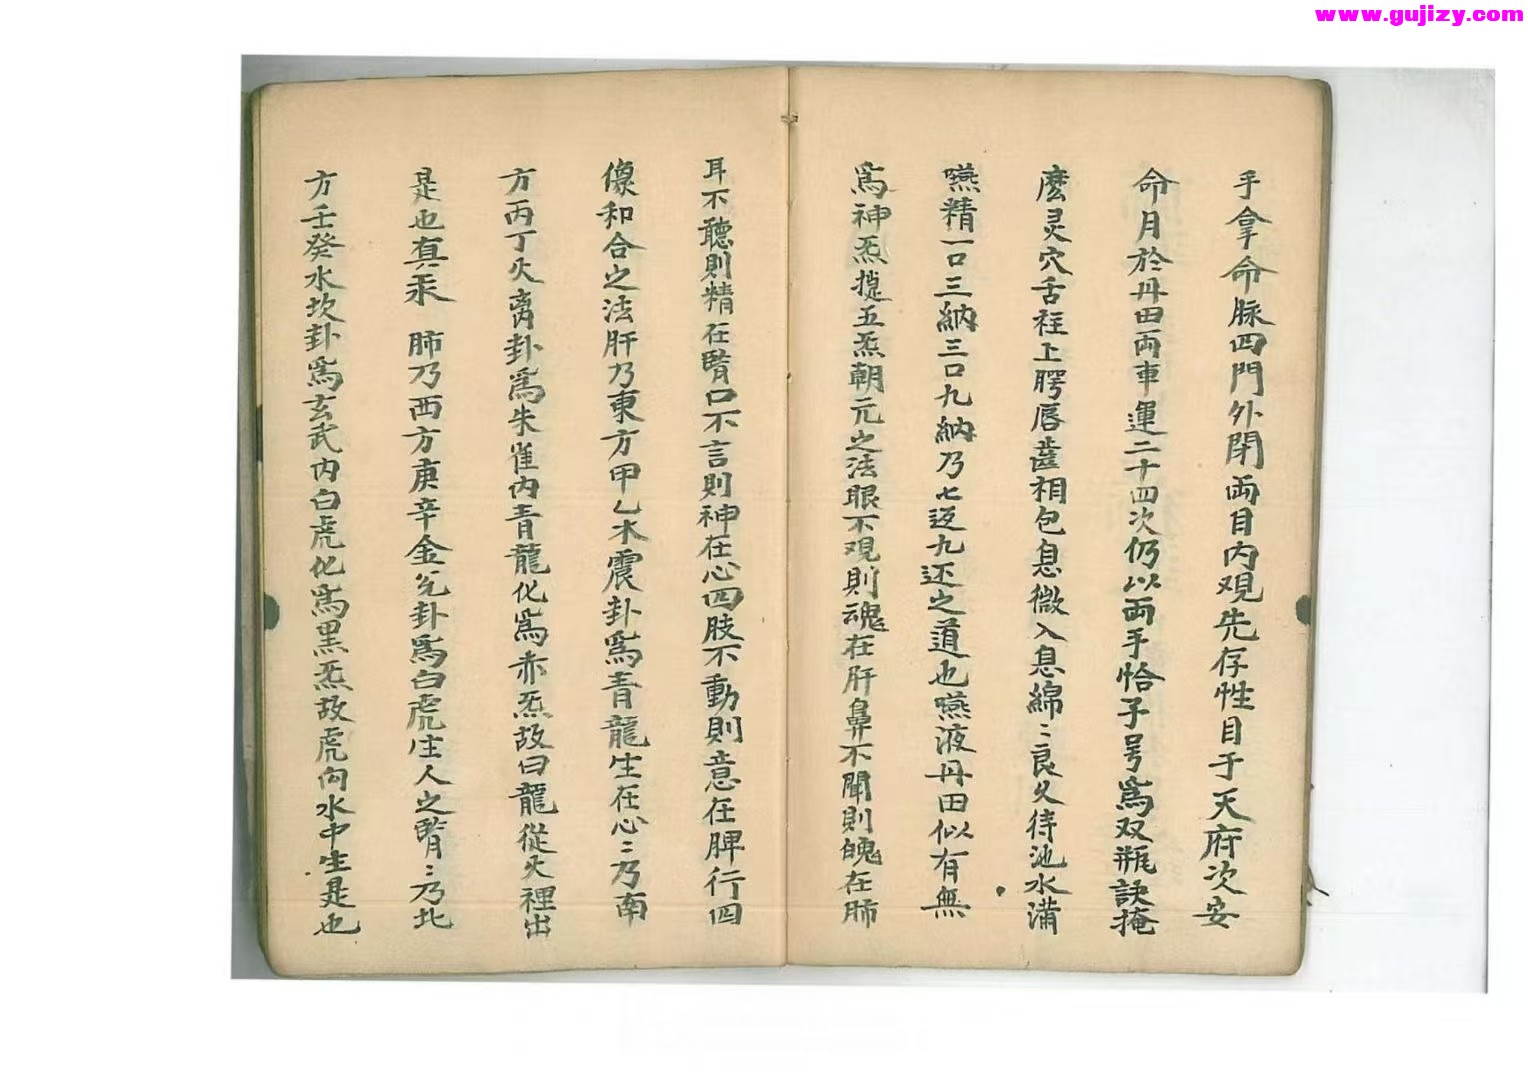 www.gujizy.com
手拿命脉四門外閉両目內观先存性目于天府次安
命月於丹田両車運二十四次仍以両手恰子号為双瓶訣掩
麽灵穴舌柱上腭唇齒相包息微入息綿〻良久待池水满
嚥精一口三納三口九納乃七返九还之道也嚥液丹田似有無
為神炁搃五炁朝元之法眼不观則魂在肝鼻不聞則魄在肺
耳不聽則精在腎口不言則神在心四肢不動則意在脾行四
像和合之法肝乃東方甲乙木震卦為青龍生在心〻乃南
方丙丁火离卦為朱雀內青龍化為赤炁故曰龍從火裡出
是也真汞 肺乃西方庚辛金兌卦為白虎生人之腎〻乃北
方壬癸水坎卦為玄武內白虎化為黑炁故虎向水中生是也